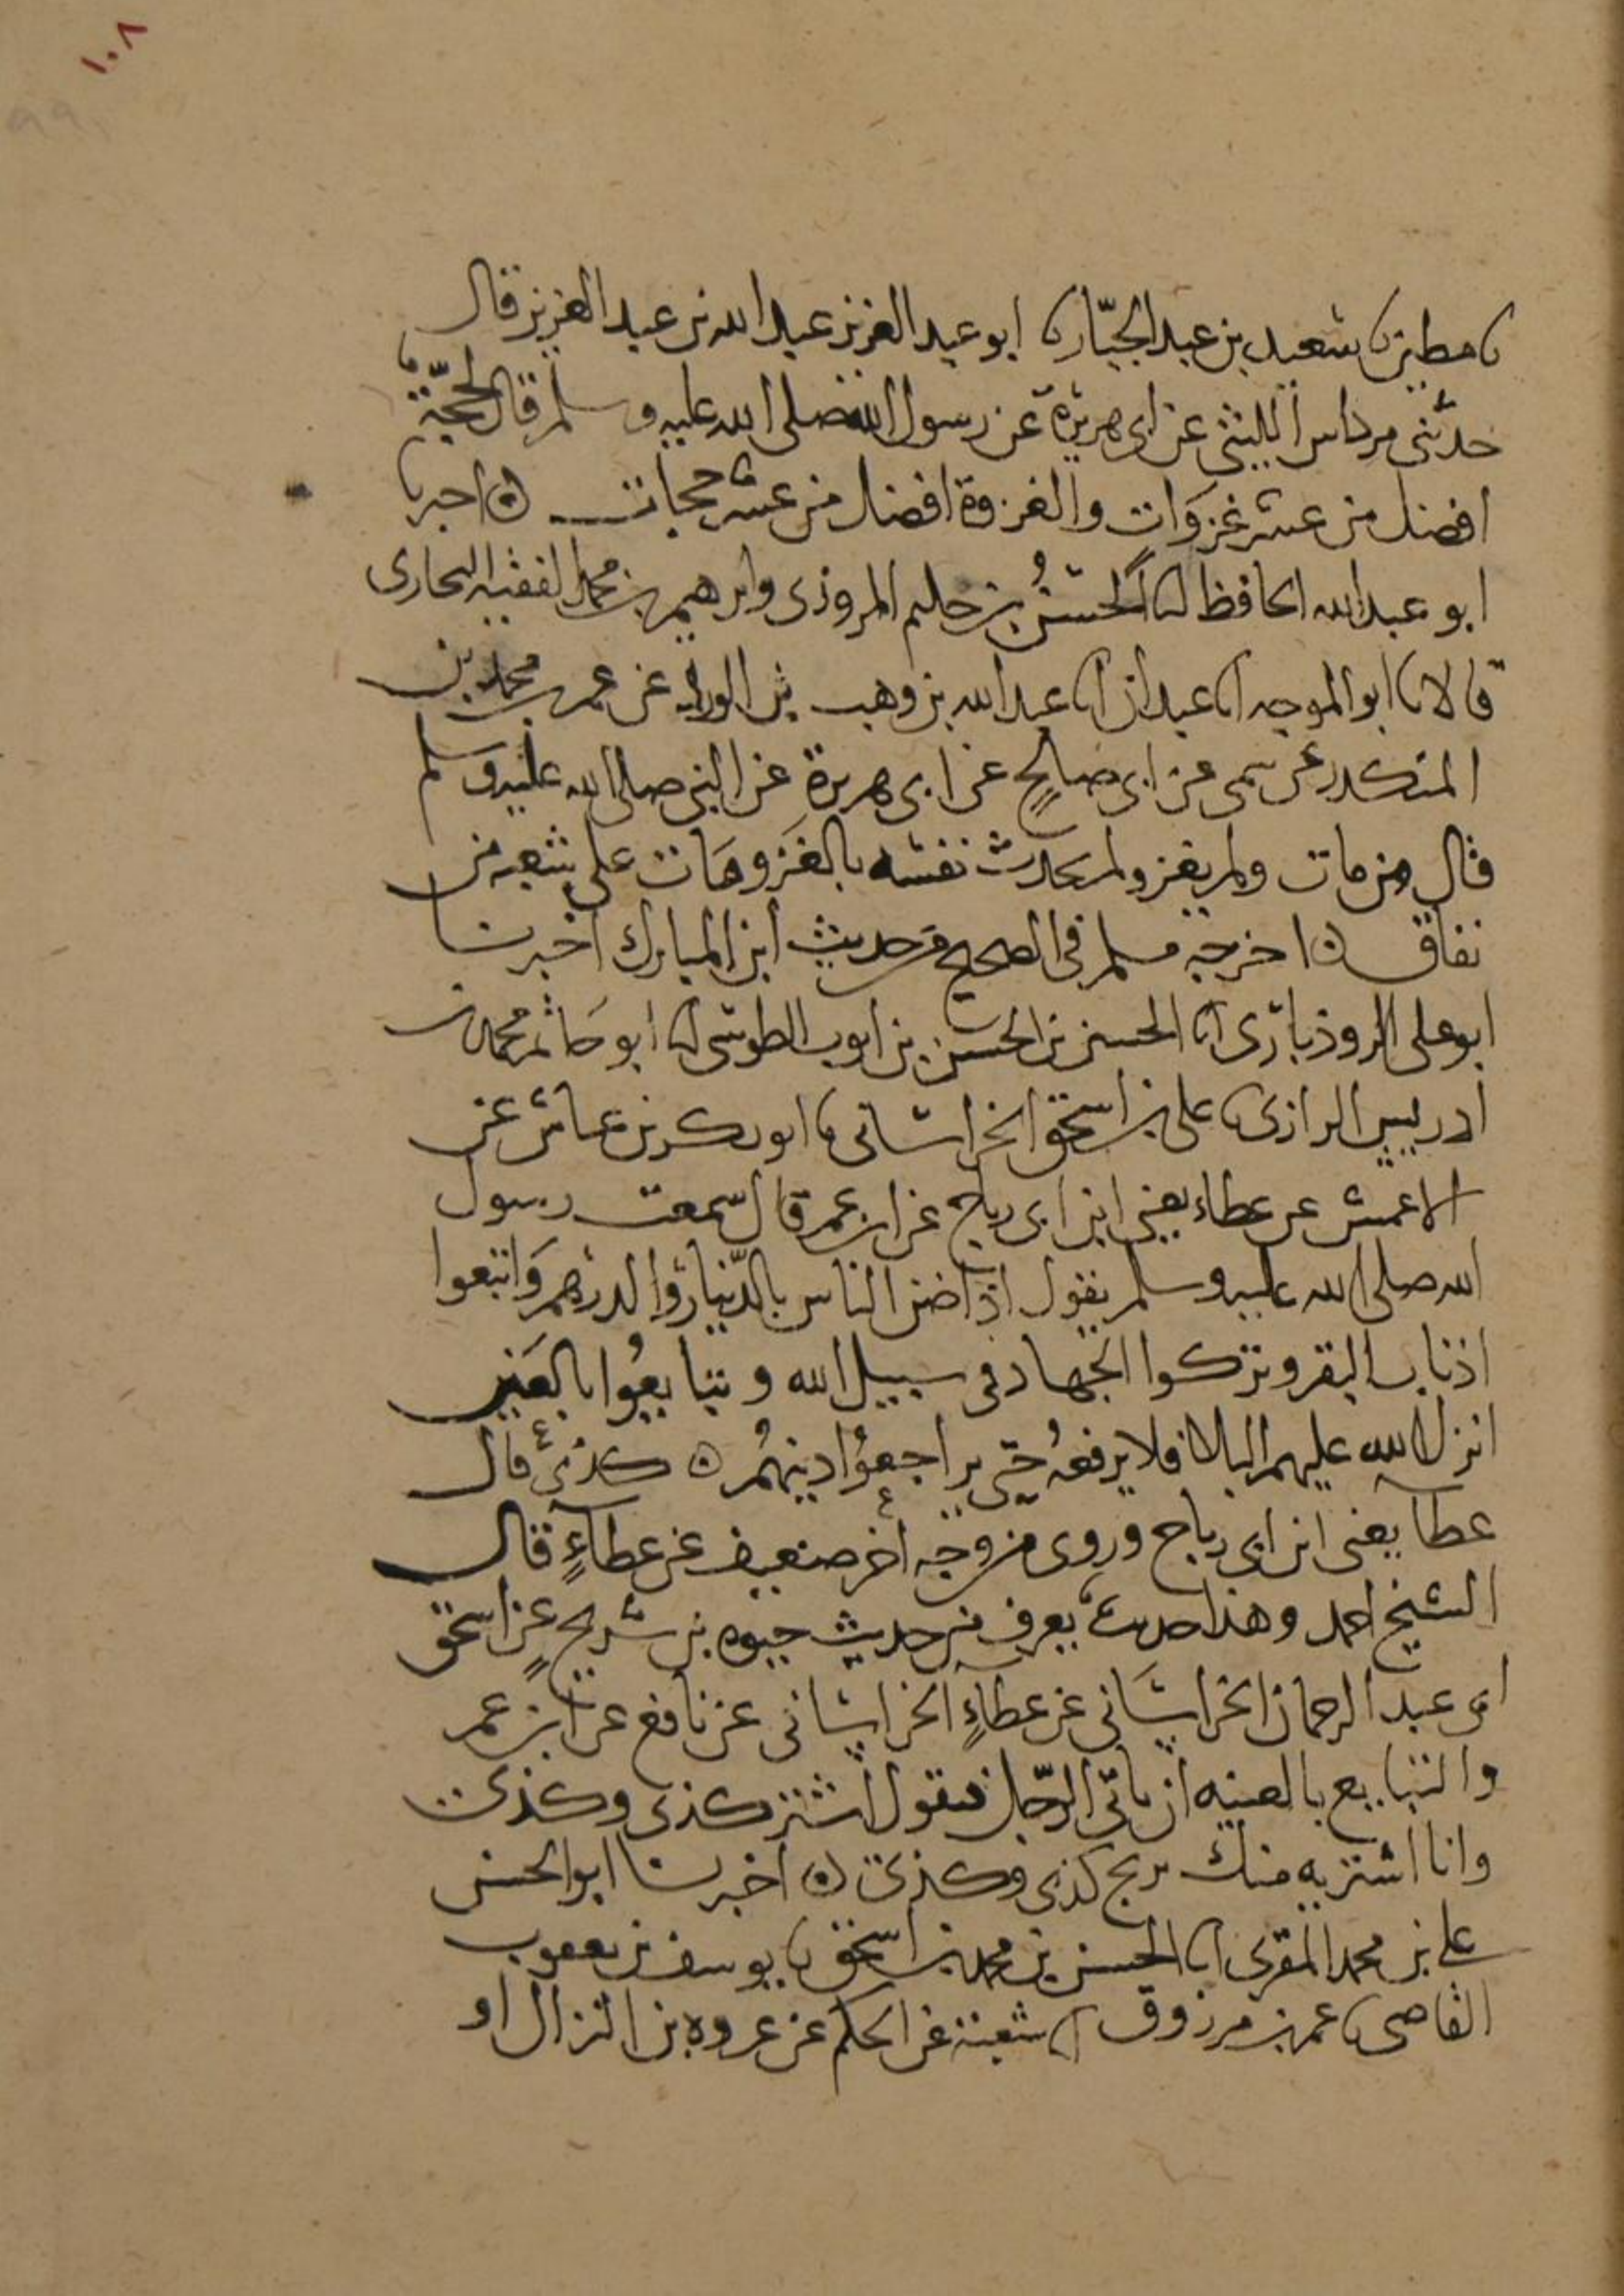 ١٠٨
نا مطين نا سعيد بن عبد الجبّار نا ابو عبد العزيز عبد الله بن عبد العزيز قال
حدّثنى مرداس الليثى عن ابى هريرة عن رسول الله صلى الله عليه وسلم قال لحجّة
افضل من عشر غزَوات والغزوة افضل من عشر حجات ه اخبرنا
ابو عبد الله الحافظ انا الحسنُ بن حليم المروزى وابرهيم بن محمد الفقيه البخارى
قالا نا ابو الموجه انا عبدان انا عبد الله بن وهيب بن الورد عن عمر بن محمد بن
المنكدر عن سمى عن ابى صالحٍ عن ابى هريرة عن النبى صلى الله عليه وسلم
قال من مات ولم يغز ولم يحدث نفسه بالغَزو مَات على شعبه من
نفاق ه اخرجه مسلم فى الصحيح من حديث ابن المبارك اخبرنا
ابو على الروذبارى انا الحسين بن الحسن بن ايوب الطوسى نا ابو حَاتم محمد بن
ادريس الرازى نا على بن اسحق الخراسانى نا ابو بكر بن عياش عن
الاعمش عن عطاء يعنى ابن ابى رباح عن ابن عمر قال سمعت رسول
الله صلى الله عليه وسلم يقول اذا ضن الناس بالدّينار والدرهم وَاتبعوا
اذناب البقر وتركوا الجهاد فى سبيل الله وتبايعُوا بالعَين
انزل الله عليهم البلا فلا يرفعهُ حتى يراجعوُا دينهمُ ه كذى قال
عطا يعنى ابن ابى رباح وروى من وجه اخر ضعيف عن عطاءٍ قال
الشيخ احمد وهذا حديث يعرف من حديث حيوه بن شريحٍ عن اسحق
ابى عبد الرحمان الخراسَانى عن عطاءٍ الخراسانى عن نافع عن ابن عمر
والتبايع بالعينه ان ياتى الرّجل فيقول اشتر كذى وكذى
وانا اشتريه منك بربح كذى وكذى ه اخبرنا ابو الحسن
على بن محمد المقرى انا الحسن بن محمد بن اسحق نا يوسف بن يعقوب
القاضى نا عمر بن مرزوق انا شعبة عن الحكم عن عروه بن النزال او